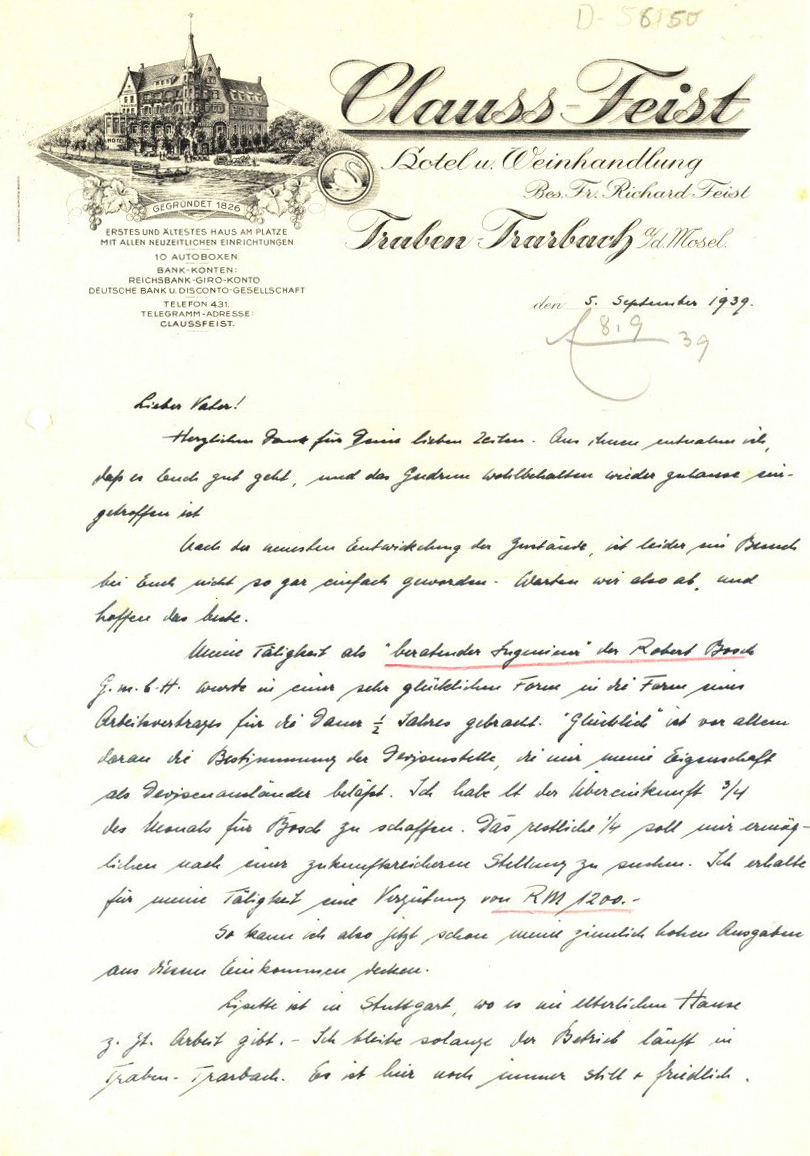 D-56150
Clauss-Feist
Hotel u. Weinhandlung
Bes. Fr. Richard Feist
Traben-Trarbach a/d. Mosel.
HOTEL
GEGRÜNDET 1826
ERSTES UND ÄLTESTES HAUS AM PLATZE
MIT ALLEN NEUZEITLICHEN EINRICHTUNGEN
10 AUTOBOXEN.
BANK-KONTEN:
REICHSBANK-GIRO-KONTO
DEUTSCHE BANK U. DISCONTO-GESELLSCHAFT
TELEFON 431.
TELEGRAMM-ADRESSE:
CLAUSSFEIST.
den 5. September 1939.
8.9 39
Lieber Vater!
Herzlichen Dank für Deine lieben Zeilen. Aus ihnen entnahm ich,
daß es Euch gut geht, und das Gudrun wohlbehalten wieder zuhause ein-
getroffen ist
Nach der neuesten Entwicklung der Zustände, ist leider ein Besuch
bei Euch nicht so gar einfach geworden. Warten wir also ab, und
hoffen das beste.
Meine Tätigkeit als "beratender Ingenieur" der Robert Bosch
G.m.b.H. wurde in einer sehr glücklichen Form in die Form eines
Arbeitsvertrages für die Dauer ½ Jahres gebracht. "Glücklich" ist vor allem
daran die Bestimmung der Devisenstelle, die mir meine Eigenschaft
als Devisenausländer beläßt. Ich habe lt der Übereinkunft 3/4
des Monats für Bosch zu schaffen. Das restliche 1/4 soll mir ermög-
lichen nach einer zukunftsreicheren Stellung zu suchen. Ich erhalte
für meine Tätigkeit eine Vergütung von RM 1200.-
So kann ich also jetzt schon meine ziemlich hohen Ausgaben
aus diesem Einkommen decken.
Lisette ist in Stuttgart, wo es im elterlichen Hause
z. Zt. Arbeit gibt. - Ich bleibe solange der Betrieb läuft in
Traben-Trarbach. Es ist hier noch immer still + friedlich.